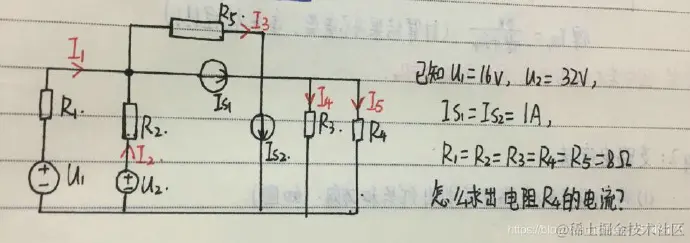 R5. I3
I1
已知 U1=16V, U2=32V,
IS1
I4 I5
R1.
R2.
R3. R4
IS2.
IS1=IS2=1A,
I2
R1=R2=R3=R4=R5=8Ω
U1
U2.
怎么求出电阻R4的电流?
@稀土掘金技术社区